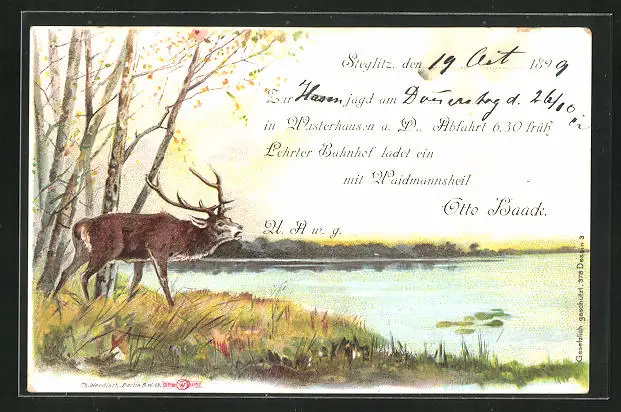 Steglitz, den 19 Oct 1899
Zur Hasenjagd am Donnerstag d. 26/10
in Wusterhausen a. D., Abfahrt 6.30 früh
Lehrter Bahnhof ladet ein
mit Waidmannsheil
Otto Baack.
U. A. w. g.
Gesetzlich geschützt 378 Dessin 3
Berlin S.W.